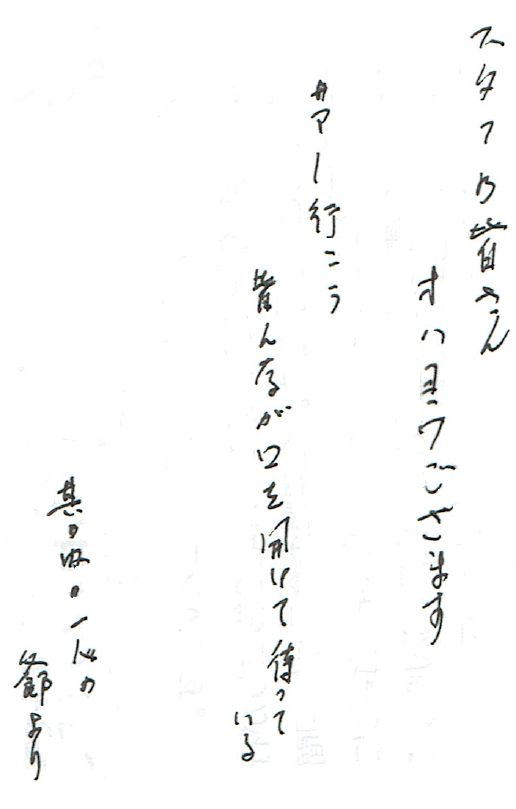 スタフ乃皆さん
オハヨウございます
サアー行こう
皆んなが口を開けて待って
いる
其の内の一人の
爺より